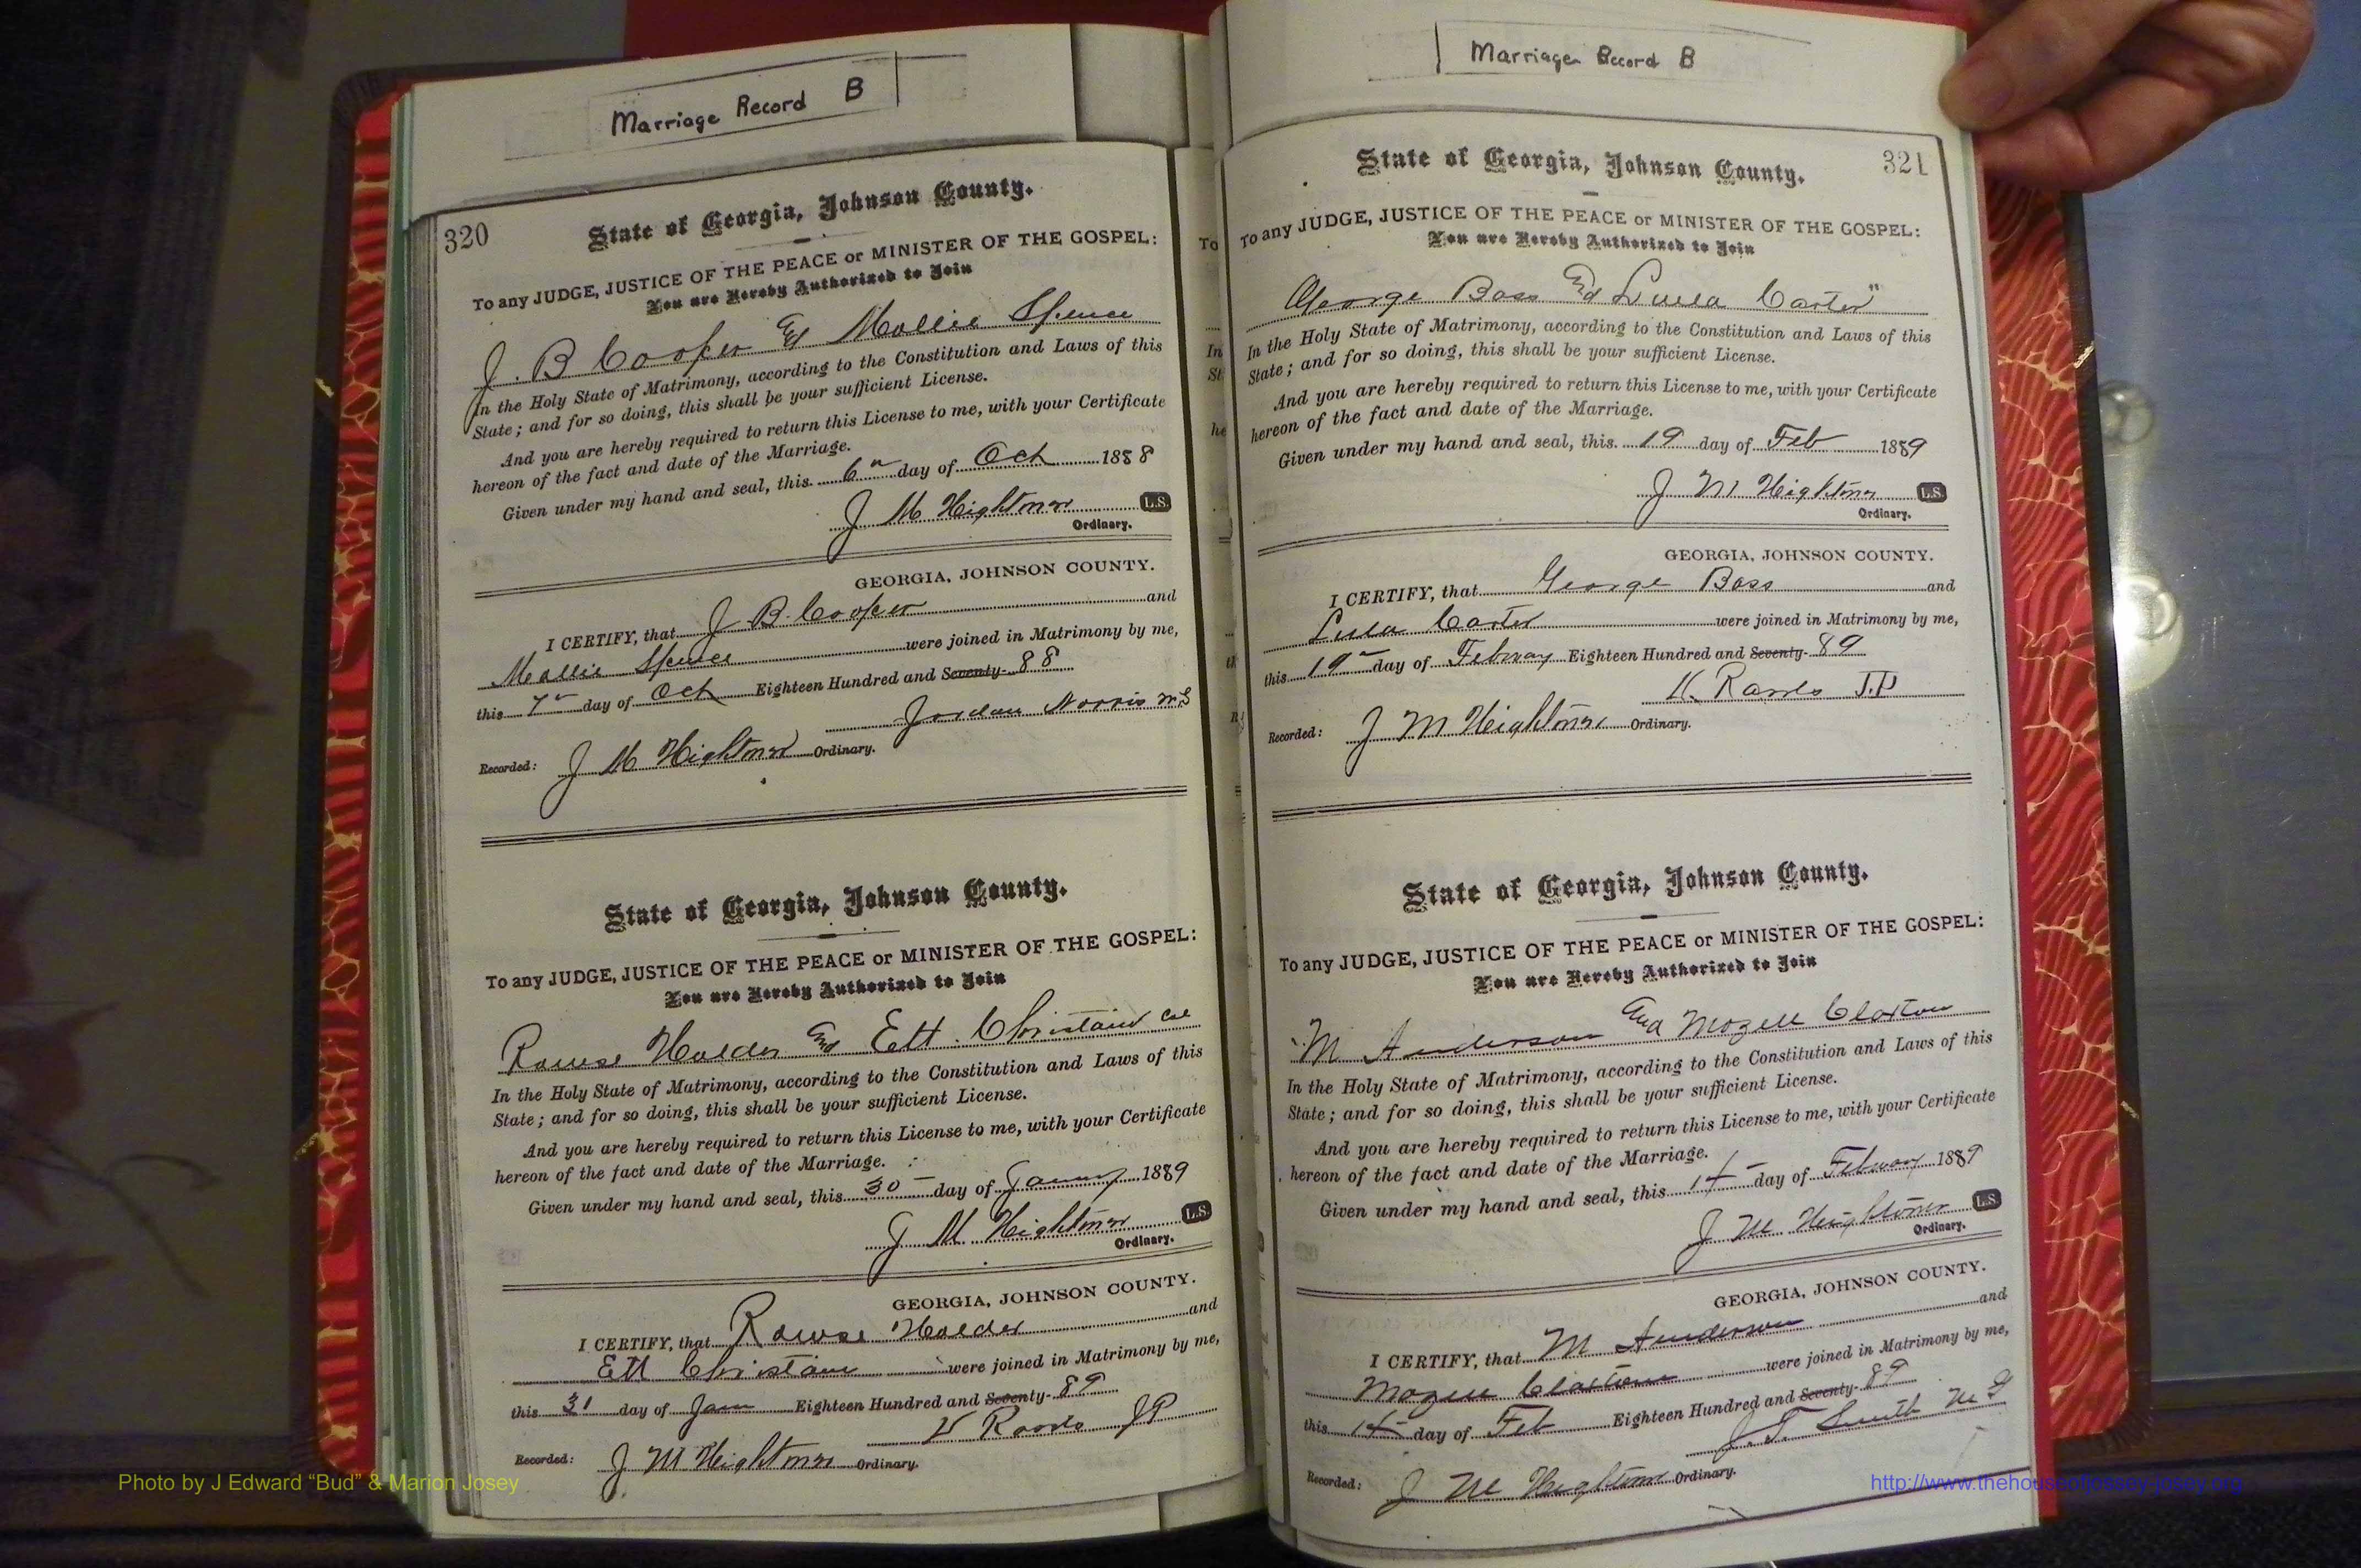 Marriage Record B
320
State of Georgia, Johnson County.
To any JUDGE, JUSTICE OF THE PEACE or MINISTER OF THE GOSPEL:
You are Hereby Authorized to Join
J. B Cooper & Mollie Spence
In the Holy State of Matrimony, according to the Constitution and Laws of this
State; and for so doing, this shall be your sufficient License.
And you are hereby required to return this License to me, with your Certificate
hereon of the fact and date of the Marriage.
Given under my hand and seal, this 6th day of Oct 1888
J M Hightower L.S.
Ordinary.
GEORGIA, JOHNSON COUNTY.
I CERTIFY, that J B. Cooper and
Mollie Spence were joined in Matrimony by me,
this 7th day of Oct Eighteen Hundred and Seventy- 88
Jordan Norris
Recorded: J M Hightower Ordinary.
State of Georgia, Johnson County.
To any JUDGE, JUSTICE OF THE PEACE or MINISTER OF THE GOSPEL:
You are Hereby Authorized to Join
Rowse Holder And Ett. Christain col
In the Holy State of Matrimony, according to the Constitution and Laws of this
State; and for so doing, this shall be your sufficient License.
And you are hereby required to return this License to me, with your Certificate
hereon of the fact and date of the Marriage.
Given under my hand and seal, this 30 day of January 1889
J M Hightower L.S.
Ordinary.
GEORGIA, JOHNSON COUNTY.
I CERTIFY, that Rowse Holder and
Ett Christain were joined in Matrimony by me,
this 31 day of Jan Eighteen Hundred and Seventy- 89
JP
Recorded: J M Hightower Ordinary.
Marriage Record B
321
State of Georgia, Johnson County.
To any JUDGE, JUSTICE OF THE PEACE or MINISTER OF THE GOSPEL:
You are Hereby Authorized to Join
George Bass And Lula Carter
In the Holy State of Matrimony, according to the Constitution and Laws of this
State; and for so doing, this shall be your sufficient License.
And you are hereby required to return this License to me, with your Certificate
hereon of the fact and date of the Marriage.
Given under my hand and seal, this 19 day of Feb 1889
J M Hightower L.S.
Ordinary.
GEORGIA, JOHNSON COUNTY.
I CERTIFY, that George Bass and
Lula Carter were joined in Matrimony by me,
this 19th day of February Eighteen Hundred and Seventy- 89
J.P
Recorded: J M Hightower Ordinary.
State of Georgia, Johnson County.
To any JUDGE, JUSTICE OF THE PEACE or MINISTER OF THE GOSPEL:
You are Hereby Authorized to Join
M Anderson And Mozell Claxton
In the Holy State of Matrimony, according to the Constitution and Laws of this
State; and for so doing, this shall be your sufficient License.
And you are hereby required to return this License to me, with your Certificate
hereon of the fact and date of the Marriage.
Given under my hand and seal, this 14 day of February 1889
J M Hightower L.S.
Ordinary.
GEORGIA, JOHNSON COUNTY.
I CERTIFY, that M Anderson and
Mozell Claxton were joined in Matrimony by me,
this 14 day of Feb Eighteen Hundred and Seventy- 89
J. T. Smith M G
Recorded: J M Hightower Ordinary.
Photo by J Edward “Bud” & Marion Josey
http://www.thehouseofjossey-josey.org